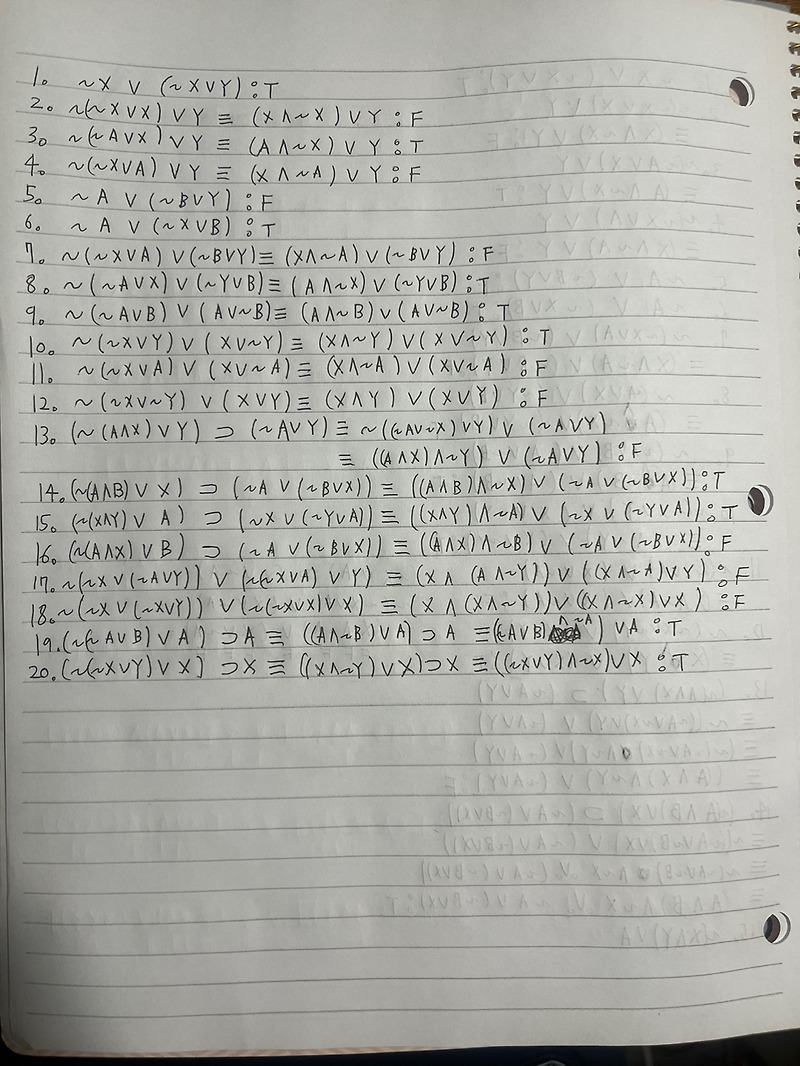 1. ~X ∨ (~X∨Y) : T
2. ~(~X∨X) ∨ Y ≡ (X∧~X) ∨ Y : F
3. ~(~A∨X) ∨ Y ≡ (A∧~X) ∨ Y : T
4. ~(~X∨A) ∨ Y ≡ (X∧~A) ∨ Y : F
5. ~A ∨ (~B∨Y) : F
6. ~A ∨ (~X∨B) : T
7. ~(~X∨A) ∨ (~B∨Y) ≡ (X∧~A) ∨ (~B∨Y) : F
8. ~(~A∨X) ∨ (~Y∨B) ≡ (A∧~X) ∨ (~Y∨B) : T
9. ~(~A∨B) ∨ (A∨~B) ≡ (A∧~B) ∨ (A∨~B) : T
10. ~(~X∨Y) ∨ (X∨~Y) ≡ (X∧~Y) ∨ (X∨~Y) : T
11. ~(~X∨A) ∨ (X∨~A) ≡ (X∧~A) ∨ (X∨~A) : F
12. ~(~X∨~Y) ∨ (X∨Y) ≡ (X∧Y) ∨ (X∨Y) : F
13. (~(A∧X) ∨ Y) ⊃ (~A∨Y) ≡ ~((~A∨~X) ∨Y) ∨ (~A∨Y)
≡ ((A∧X) ∧~Y) ∨ (~A∨Y) : F
14. (~(A∧B) ∨ X) ⊃ (~A ∨ (~B∨X)) ≡ ((A∧B) ∧~X) ∨ (~A ∨ (~B∨X)) : T
15. (~(X∧Y) ∨ A) ⊃ (~X ∨ (~Y∨A)) ≡ ((X∧Y) ∧~A) ∨ (~X ∨ (~Y∨A)) : T
16. (~(A∧X) ∨ B) ⊃ (~A ∨ (~B∨X)) ≡ ((A∧X) ∧~B) ∨ (~A ∨ (~B∨X)) : F
17. ~(~X ∨ (~A∨Y)) ∨ (~(~X∨A) ∨ Y) ≡ (X ∧ (A∧~Y)) ∨ ((X∧~A) ∨ Y) : F
18. ~(~X ∨ (~X∨Y)) ∨ (~(~X∨X) ∨ X) ≡ (X ∧ (X∧~Y)) ∨ ((X∧~X) ∨ X) : F
19. (~(~A∨B) ∨ A) ⊃ A ≡ ((A∧~B) ∨ A) ⊃ A ≡ ((~A∨B) ∧~A) ∨ A : T
20. (~(~X∨Y) ∨ X] ⊃ X ≡ ((X∧~Y) ∨ X) ⊃ X ≡ ((~X∨Y) ∧~X) ∨ X : T